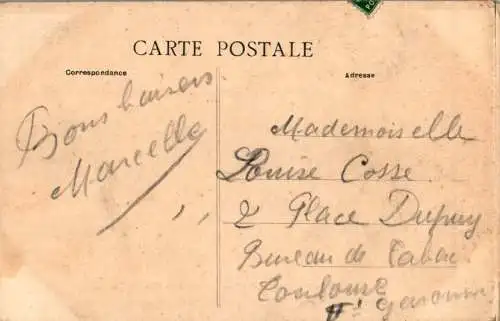 CARTE POSTALE
Correspondance
Adresse
Bons baisers
Marcelle
Mademoiselle
Louise Cosse
2 Place Dupuy
Bureau de Tabac
Toulouse
Hte Garonne